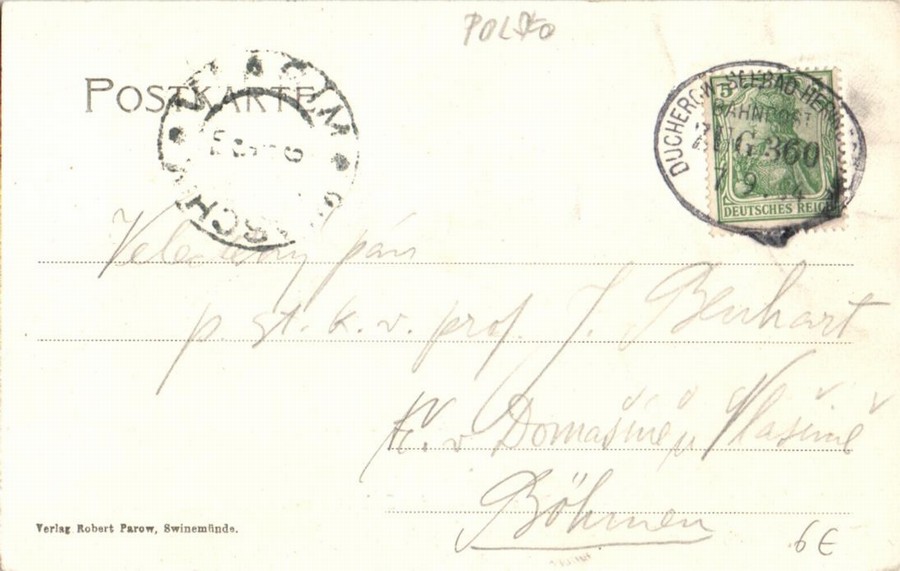 POLSKO
POSTKARTE
DUCHEROW-SEEBAD HERIN
BAHNPOST
ZUG 360
7 9 04
DEUTSCHES REICH
Velectěný pán
p. st. k. v. prof. J. Benhart
t. č. v Domašíně u Vlašimě
Böhmen
Verlag Robert Parow, Swinemünde.
6€